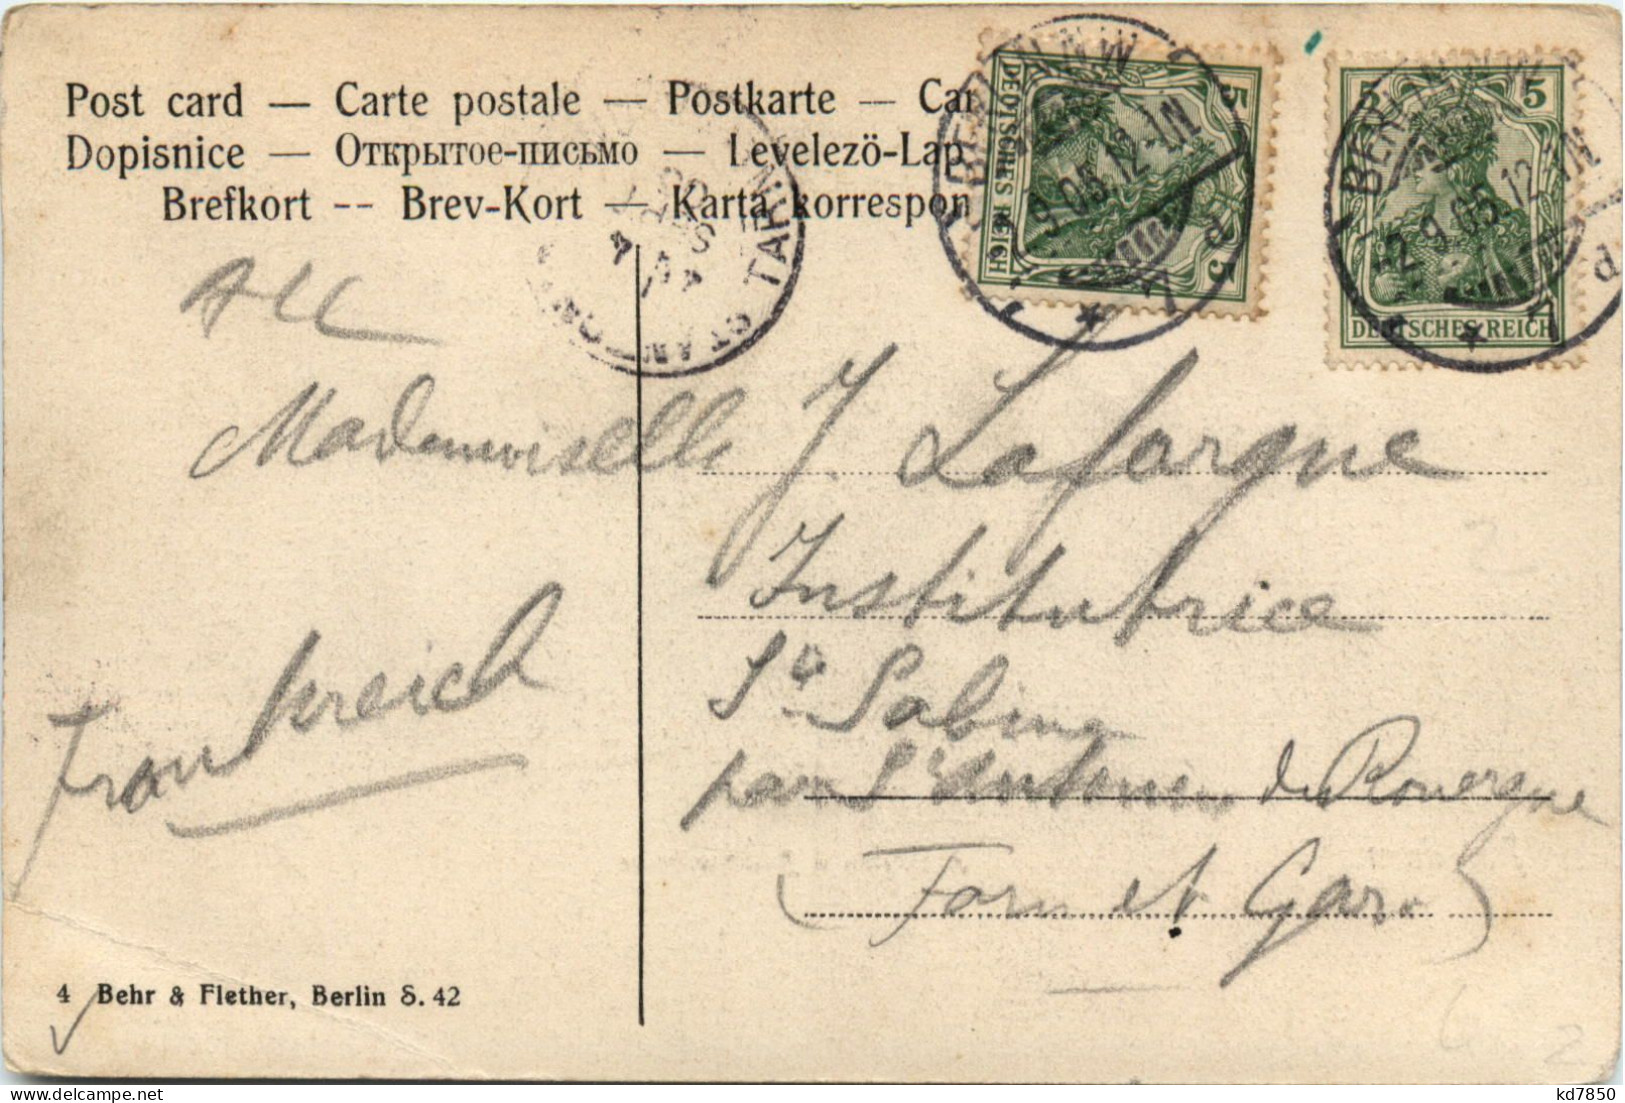 Post card — Carte postale — Postkarte — Car
Dopisnice — Открытое-письмо — Levelezö-Lap
Brefkort -- Brev-Kort — Karta korrespon
DEUTSCHES REICH
5 5
BERLIN N.W.
9.05.12-1N
* 7 d
5 5
DEUTSCHES REICH
BERLIN N.W.
2.9.05.12-1N
* 7 d
TARN
Mademoiselle J Lafargue
Institutrice
Ste Sabine
par St Antonin de Rouergue
(Tarn et Gar.)
Frankreich
4 Behr & Flether, Berlin S. 42
kd7850